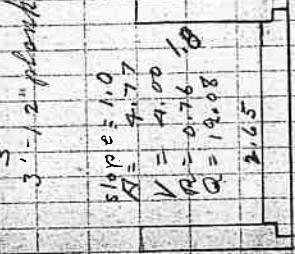 3'-12" plank
slope = 1.0
A = 4.77
V = 4.00
R = 0.76
Q = 19.08
1.8
2.65